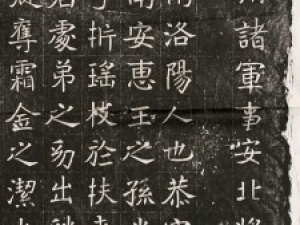 諸軍事安北將
洛陽人也恭宗
南安惠王之孫
折瑤枝於扶桑
處弟之幼出
奪霜金之潔